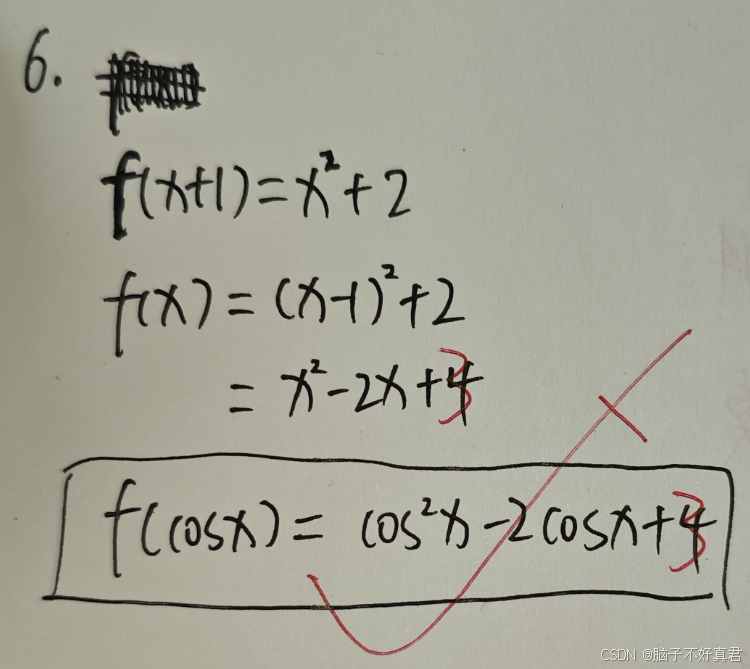 6.
f(x+1)=x²+2
f(x)=(x-1)²+2
=x²-2x+3
f(cosx)=cos²x-2cosx+3
CSDN @脑子不好真君